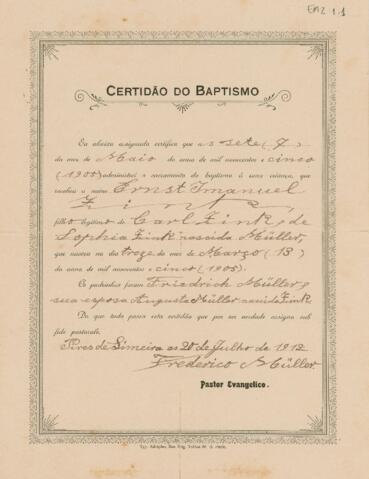 EMZ 1.1
CERTIDÃO DO BAPTISMO
Eu abaixo assignado certifico que aos sete (7)
do mez de Maio do anno de mil novecentos e cinco
(1905) administrei o sacramento do baptismo á uma criança, que
recebeu o nome Ernst Imanuel
Zink,
filho legitimo de Carl Zink e de
Sophia Zink nascida Müller,
que nasceu no dia treze do mez de Março (13)
do anno de mil novecentos e cinco (1905).
Os padrinhos foram Friedrich Müller e
sua esposa Augusta Müller nascida Zink
Do que tudo passo esta certidão que por ser verdade assigno sub
fide pastorali.
Pires de Limeira aos 20 de Julho de 1912
Frederico Müller.
Pastor Evangelico.